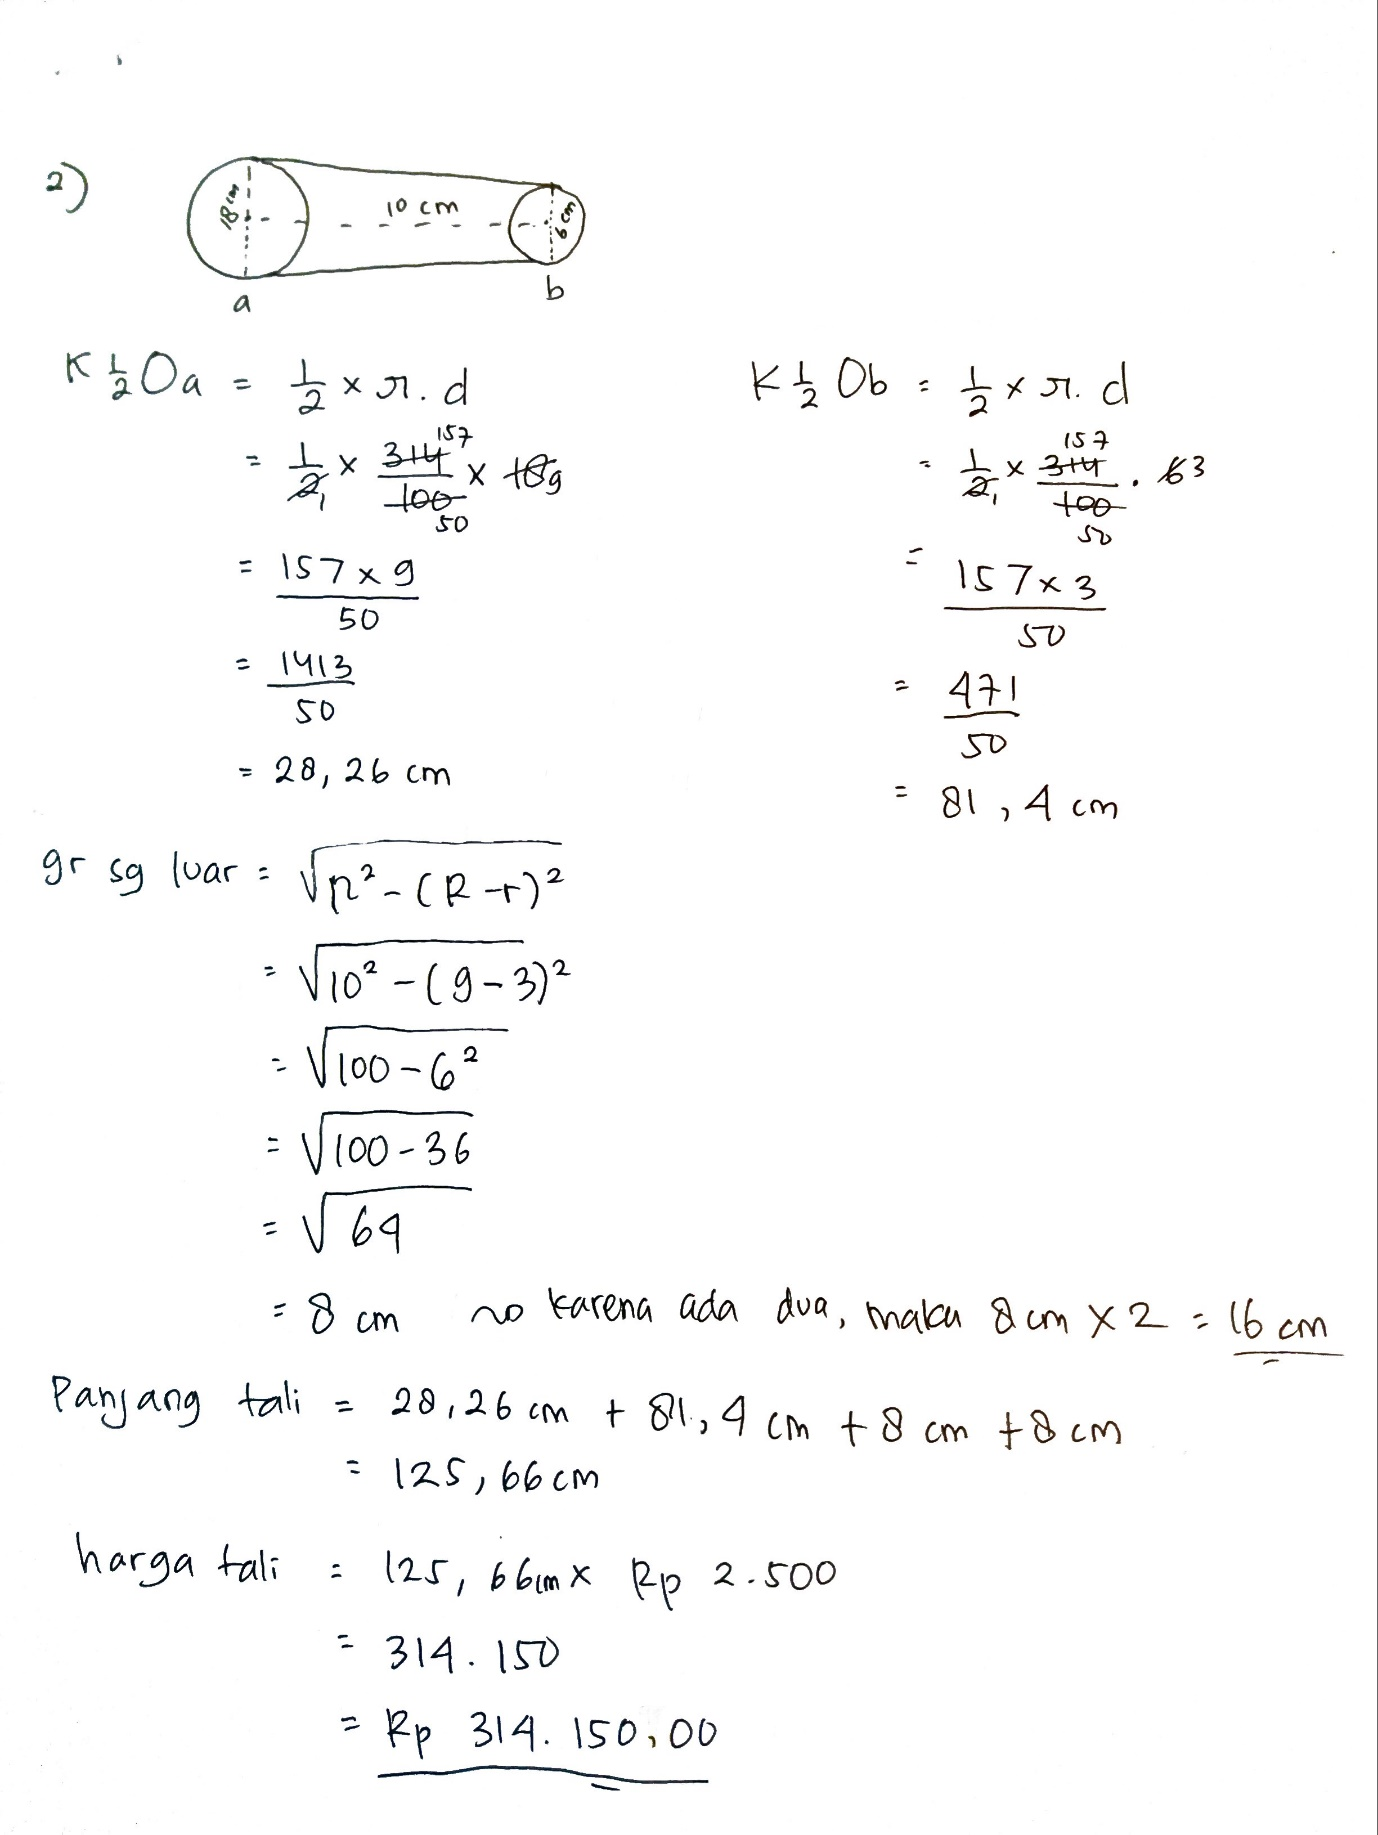 2)
18 cm
10 cm
6 cm
a
b
K ½ Oa = 1/2 × π. d
= 1/2 1 × 314 157 / 100 50 × 18 9
= 157 × 9 / 50
= 1413 / 50
= 28,26 cm
K ½ Ob = 1/2 × π. d
= 1/2 1 × 314 157 / 100 50 . 6 3
= 157 × 3 / 50
= 471 / 50
= 81,4 cm
gr sg luar = √p² - (R - r)²
= √10² - (9 - 3)²
= √100 - 6²
= √100 - 36
= √64
= 8 cm ~> karena ada dua, maka 8 cm × 2 = 16 cm
Panjang tali = 28,26 cm + 81,4 cm + 8 cm + 8 cm
= 125,66 cm
harga tali = 125,66cm × Rp 2.500
= 314.150
= Rp 314.150,00